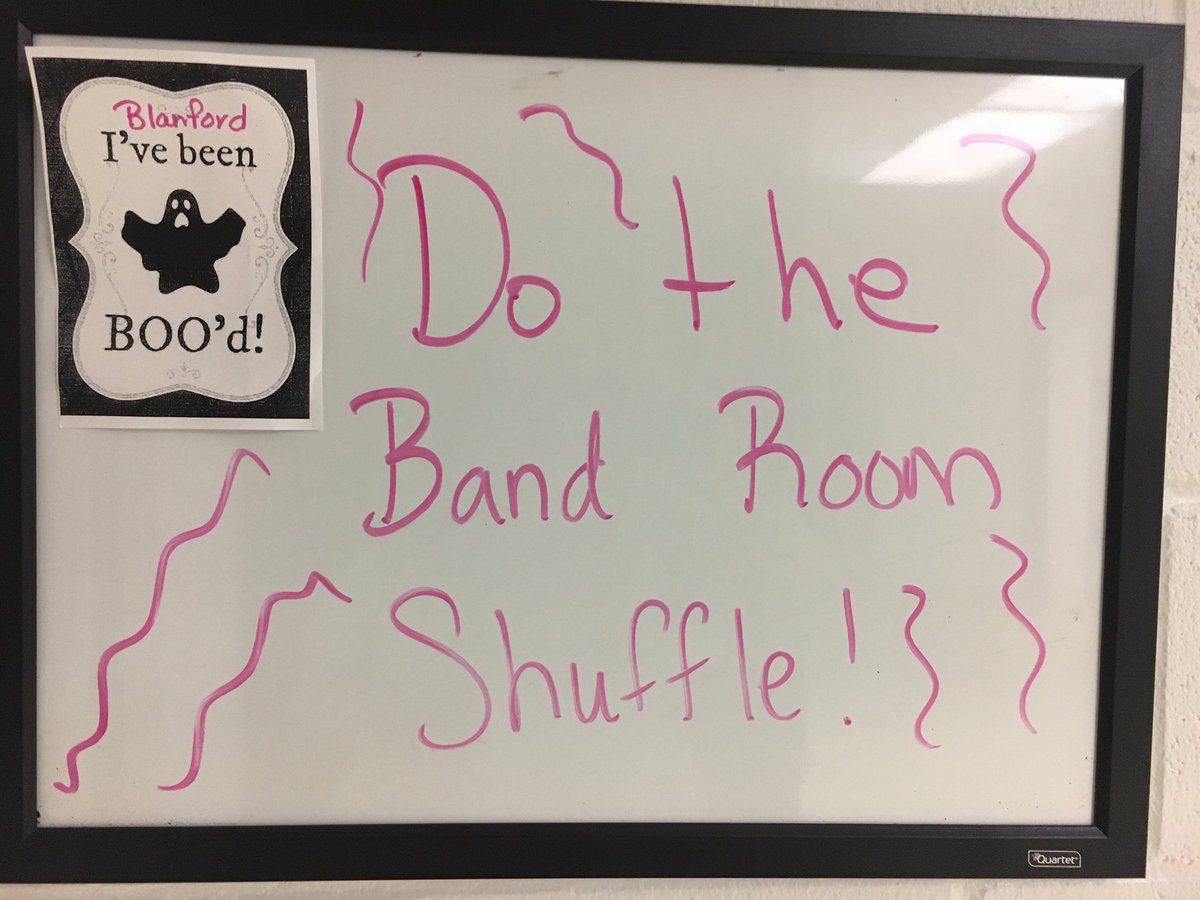 Blanford
I've been
BOO'd!
Do the
Band Room
Shuffle!
Quartet